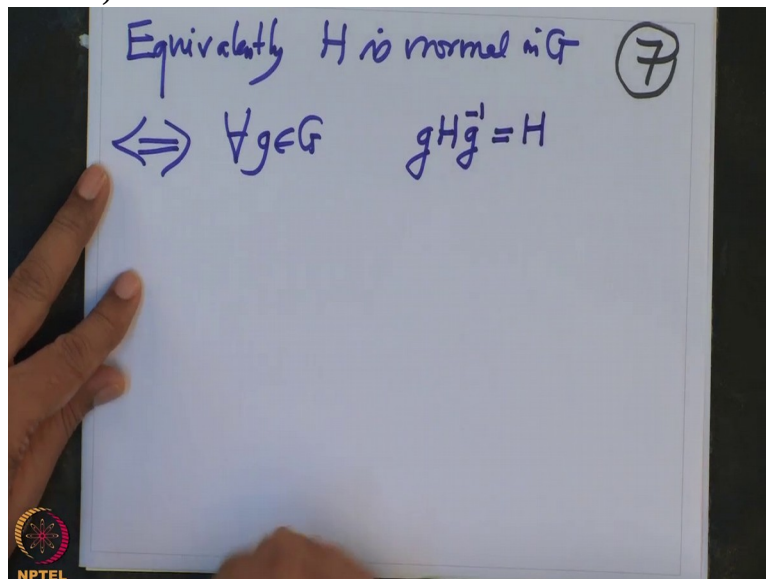 Equivalently H is normal in G
7
⟺ ∀g∈G gHg⁻¹ = H
NPTEL